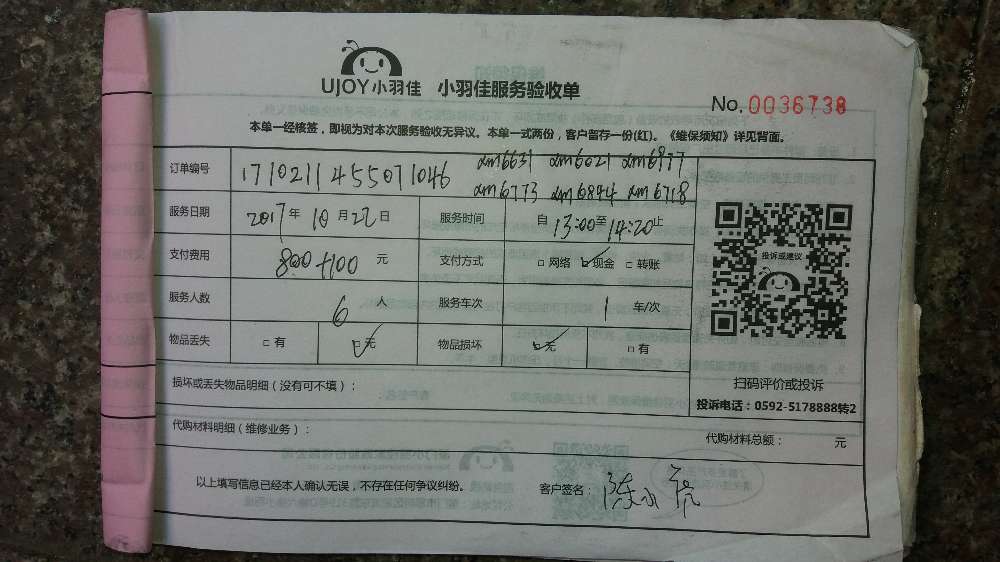 UJOY小羽佳 小羽佳服务验收单
No. 0036738
本单一经核签，即视为对本次服务验收无异议。本单一式两份，客户留存一份(红)。《维保须知》详见背面。
订单编号 171021145507 1046 xm6631 xm6021 xm6977
xm6773 xm6844 xm6718
服务日期 2017年 10月22日 服务时间 自13:00至14:20止
投诉或建议
支付费用 800+100 元 支付方式 □网络 ☑现金 □转账
服务人数 6 人 服务车次 1 车/次
物品丢失 □有 ☑无 物品损坏 ☑无 □有
损坏或丢失物品明细（没有可不填）：
扫码评价或投诉
投诉电话：0592-5178888转2
代购材料明细（维修业务）：
代购材料总额： 元
以上填写信息已经本人确认无误，不存在任何争议纠纷。 客户签名：